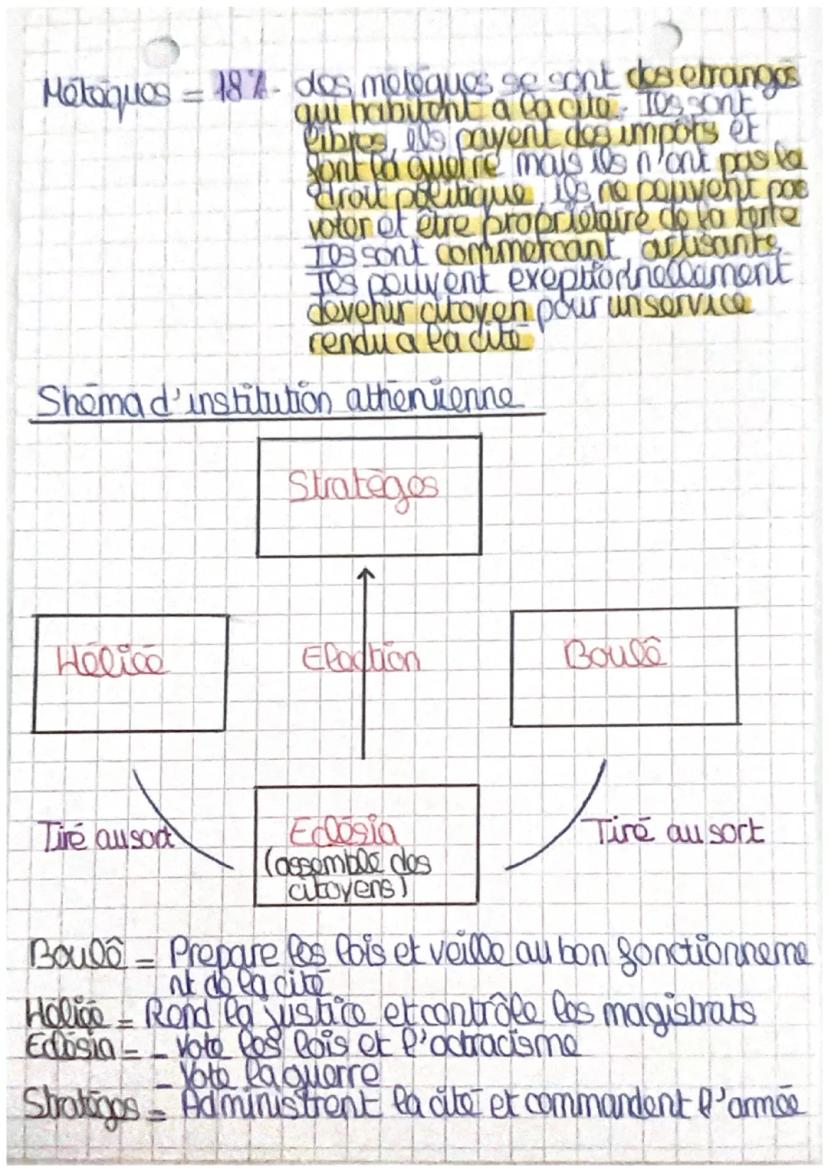 Métèques = 18% - des métèques se sont des etrangés
qui habitent a la cité. Ils sont
libres, ils payent des impôts et
font la guerre mais ils n'ont pas la
droit politique, ils ne peuvent pas
voter et être propriétaire de la terre
Ils sont commercant, artisants.
Ils peuvent exeptionnellement
devenir citoyen pour un service
rendu a la cité
Shéma d'institution athénienne
Stratèges
Héliée
Election
Boulê
Tiré au sort
Eclésia
(assemblé des
citoyens)
Tiré au sort
Boulê = Prepare les lois et veille au bon fonctionneme
nt de la cité
Héliée = Rend la justice et contrôle les magistrats
Eclésia = - vote les lois et l'octracisme
- Vote la guerre
Stratèges = Administrent la cité et commandent l'armée